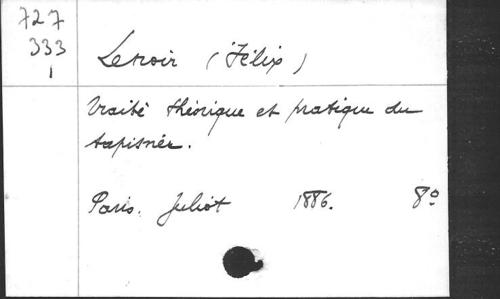 727
333
1
Lenoir (Félix)
Traité théorique et pratique du
tapissier.
Paris. Juliot 1886. 8°